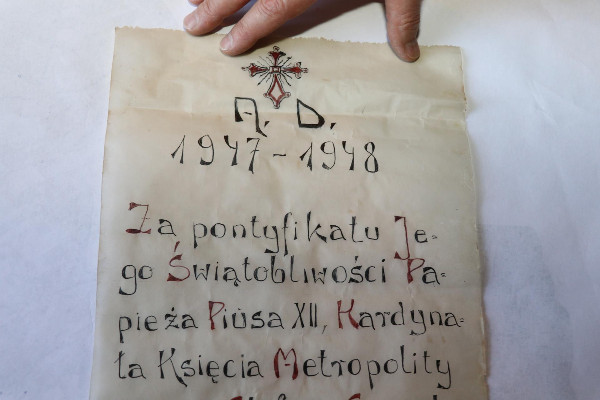 A. D.
1947-1948
Za pontyfikatu Je-
go Świątobliwości Pa-
pieża Piusa XII, Kardyna-
ła Księcia Metropolity